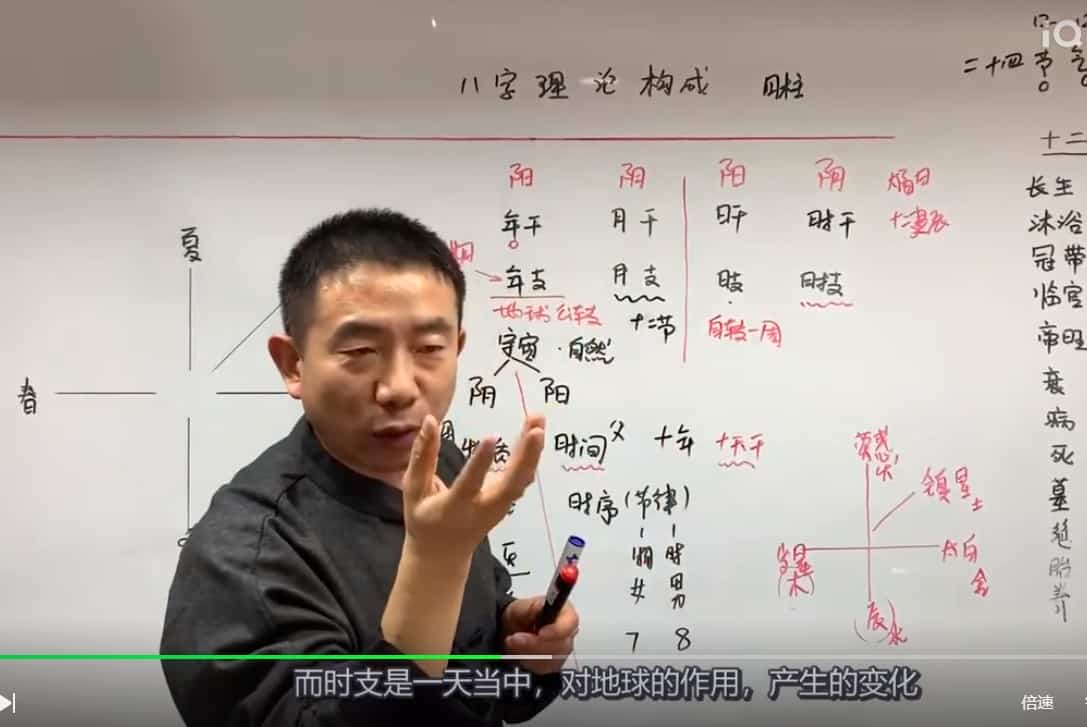 八字理论构成 四柱
二十四节气
iQ
阳 阴 阳 阴
年干 月干 日干 时干
年支 月支 日支 时支
地球公转
十二节
自转一周
宇宙·自然
阴 阳
夏
春
时间 父 十年 十天干
时序(节律)
女 男
7 8
荧惑
火
镇星
土
太白
金
木
辰
水
十二
长生
沐浴
冠带
临官
帝旺
衰
病
死
墓
绝
胎
养
而时支是一天当中，对地球的作用，产生的变化
倍速